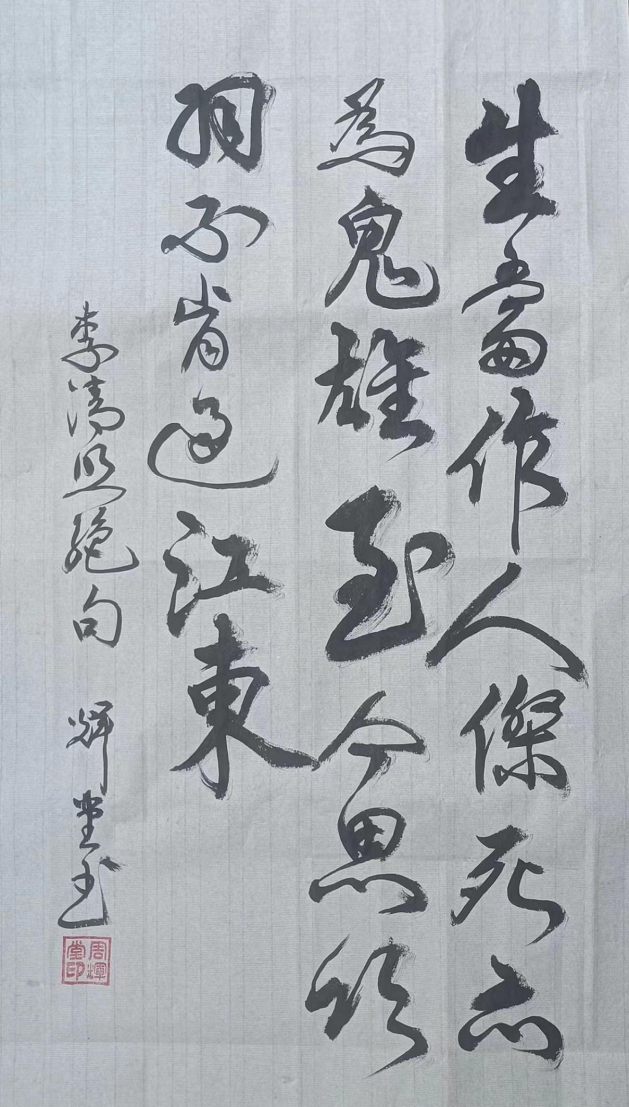 生當作人傑死亦
為鬼雄至今思項
羽不肯過江東
李清照絕句 輝堂书
周輝堂印